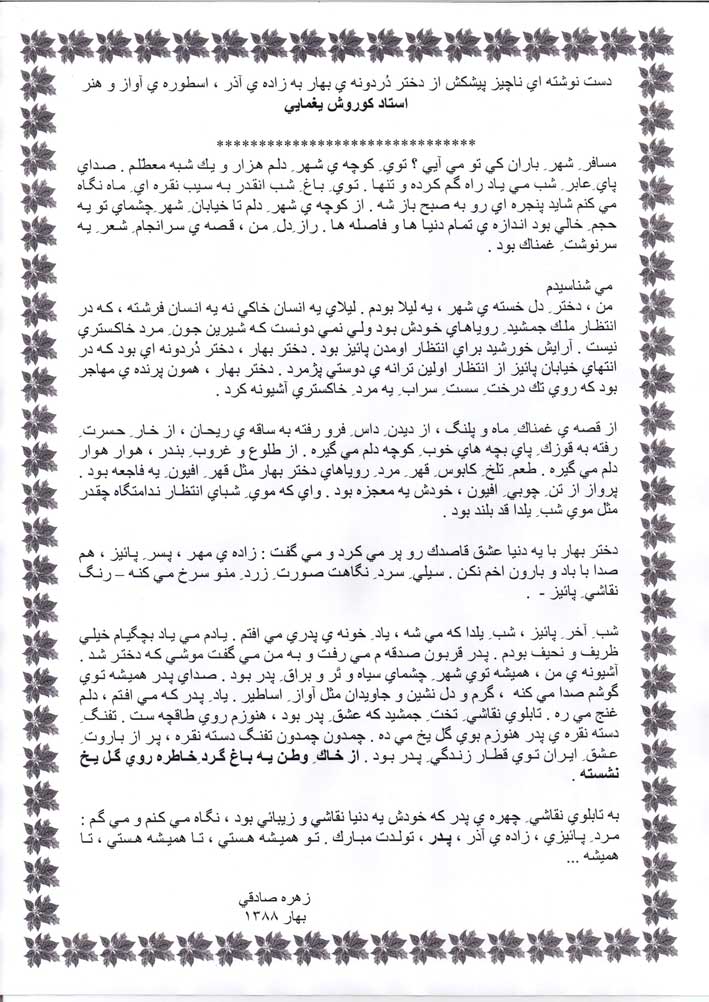 دست نوشته اي ناچيز پيشكش از دختر دُردونه ي بهار به زاده ي آذر ، اسطوره ي آواز و هنر
استاد كوروش يغمايي
*******************************
مسافرِ شهرِ باران كي تو مي آيي ؟ تويِ كوچه ي شهرِ دلم هزار و يك شبه معطلم . صداي
پايِ عابرِ شب مي ياد راه گم كرده و تنها . تويِ باغِ شب انقدر به سيب نقره اي ِ ماه نگاه
مي كنم شايد پنجره اي رو به صبح باز شه . از كوچه ي شهرِ دلم تا خيابانِ شهرِ چشماي تو يه
حجمِ خالي بود اندازه ي تمام دنيا ها و فاصله ها . رازِ دلِ من ، قصه ي سرانجامِ شعرِ يه
سرنوشتِ غمناك بود .
مي شناسيدم
من ، دخترِ دل خسته ي شهر ، يه ليلا بودم . ليلاي يه انسان خاكي نه يه انسان فرشته ، كه در
انتظار ملك جمشيدِ روياهاي خودش بود ولي نمي دونست كه شيرين جونِ مرد خاكستري
نيست . آرايش خورشيد براي انتظار اومدن پائيز بود . دختر بهار ، دختر دُردونه اي بود كه در
انتهاي خيابان پائيز از انتظار اولين ترانه ي دوستي پژمرد . دختر بهار ، همون پرنده ي مهاجر
بود كه روي تك درختِ سستِ سراب يه مردِ خاكستري آشيونه كرد .
از قصه ي غمناكِ ماه و پلنگ ، از ديدنِ داسِ فرو رفته به ساقه ي ريحان ، از خارِ حسرتِ
رفته به قوزكِ پاي بچه هاي خوبِ كوچه دلم مي گيره . از طلوع و غروبِ بندر ، هوار هوار
دلم مي گيره . طعمِ تلخِ كابوس ِ قهرِ مردِ روياهاي دختر بهار مثل قهرِ افيون ِ يه فاجعه بود .
پرواز از تنِ چوبيِ افيون ، خودش يه معجزه بود . واي كه مويِ شباي انتظار ندامتگاه چقدر
مثل موي شبِ يلدا قد بلند بود .
دختر بهار با يه دنيا عشق قاصدك رو پر مي كرد و مي گفت : زاده ي مهر ، پسرِ پائيز ، هم
صدا با باد و بارون اخم نكن . سيليِ سردِ نگاهت صورتِ زردِ منو سرخ مي كنه – رنگ
نقاشيِ پائيز - .
شبِ آخرِ پائيز ، شبِ يلدا كه مي شه ، يادِ خونه ي پدري مي افتم . يادم مي ياد بچگيام خيلي
ظريف و نحيف بودم . پدر قربون صدقه م مي رفت و به من مي گفت موشي كه دختر شد .
آشيونه ي من ، هميشه توي شهرِ چشماي سياه و تَر و براقِ پدر بود . صداي پدر هميشه توي
گوشم صدا مي كنه ، گرم و دل نشين و جاويدان مثل آوازِ اساطير . يادِ پدر كه مي افتم ، دلم
غنج مي ره . تابلوي نقاشيِ تختِ جمشيد كه عشقِ پدر بود ، هنوزم روي طاقچه ست . تفنگِ
دسته نقره ي پدر هنوزم بوي گل يخ مي ده . چمدون چمدون تفنگ دسته نقره ، پر از باروتِ
عشقِ ايران توي قطار زندگيِ پدر بود . از خاكِ وطن يه باغ گردِ خاطره روي گل يخ
نشسته .
به تابلوي نقاشيِ چهره ي پدر كه خودش يه دنيا نقاشي و زيبائي بود ، نگاه مي كنم و مي گم :
مردِ پائيزي ، زاده ي آذر ، پدر ، تولدت مبارك . تو هميشه هستي ، تا هميشه هستي ، تا
هميشه ...
زهره صادقي
بهار ١٣٨٨